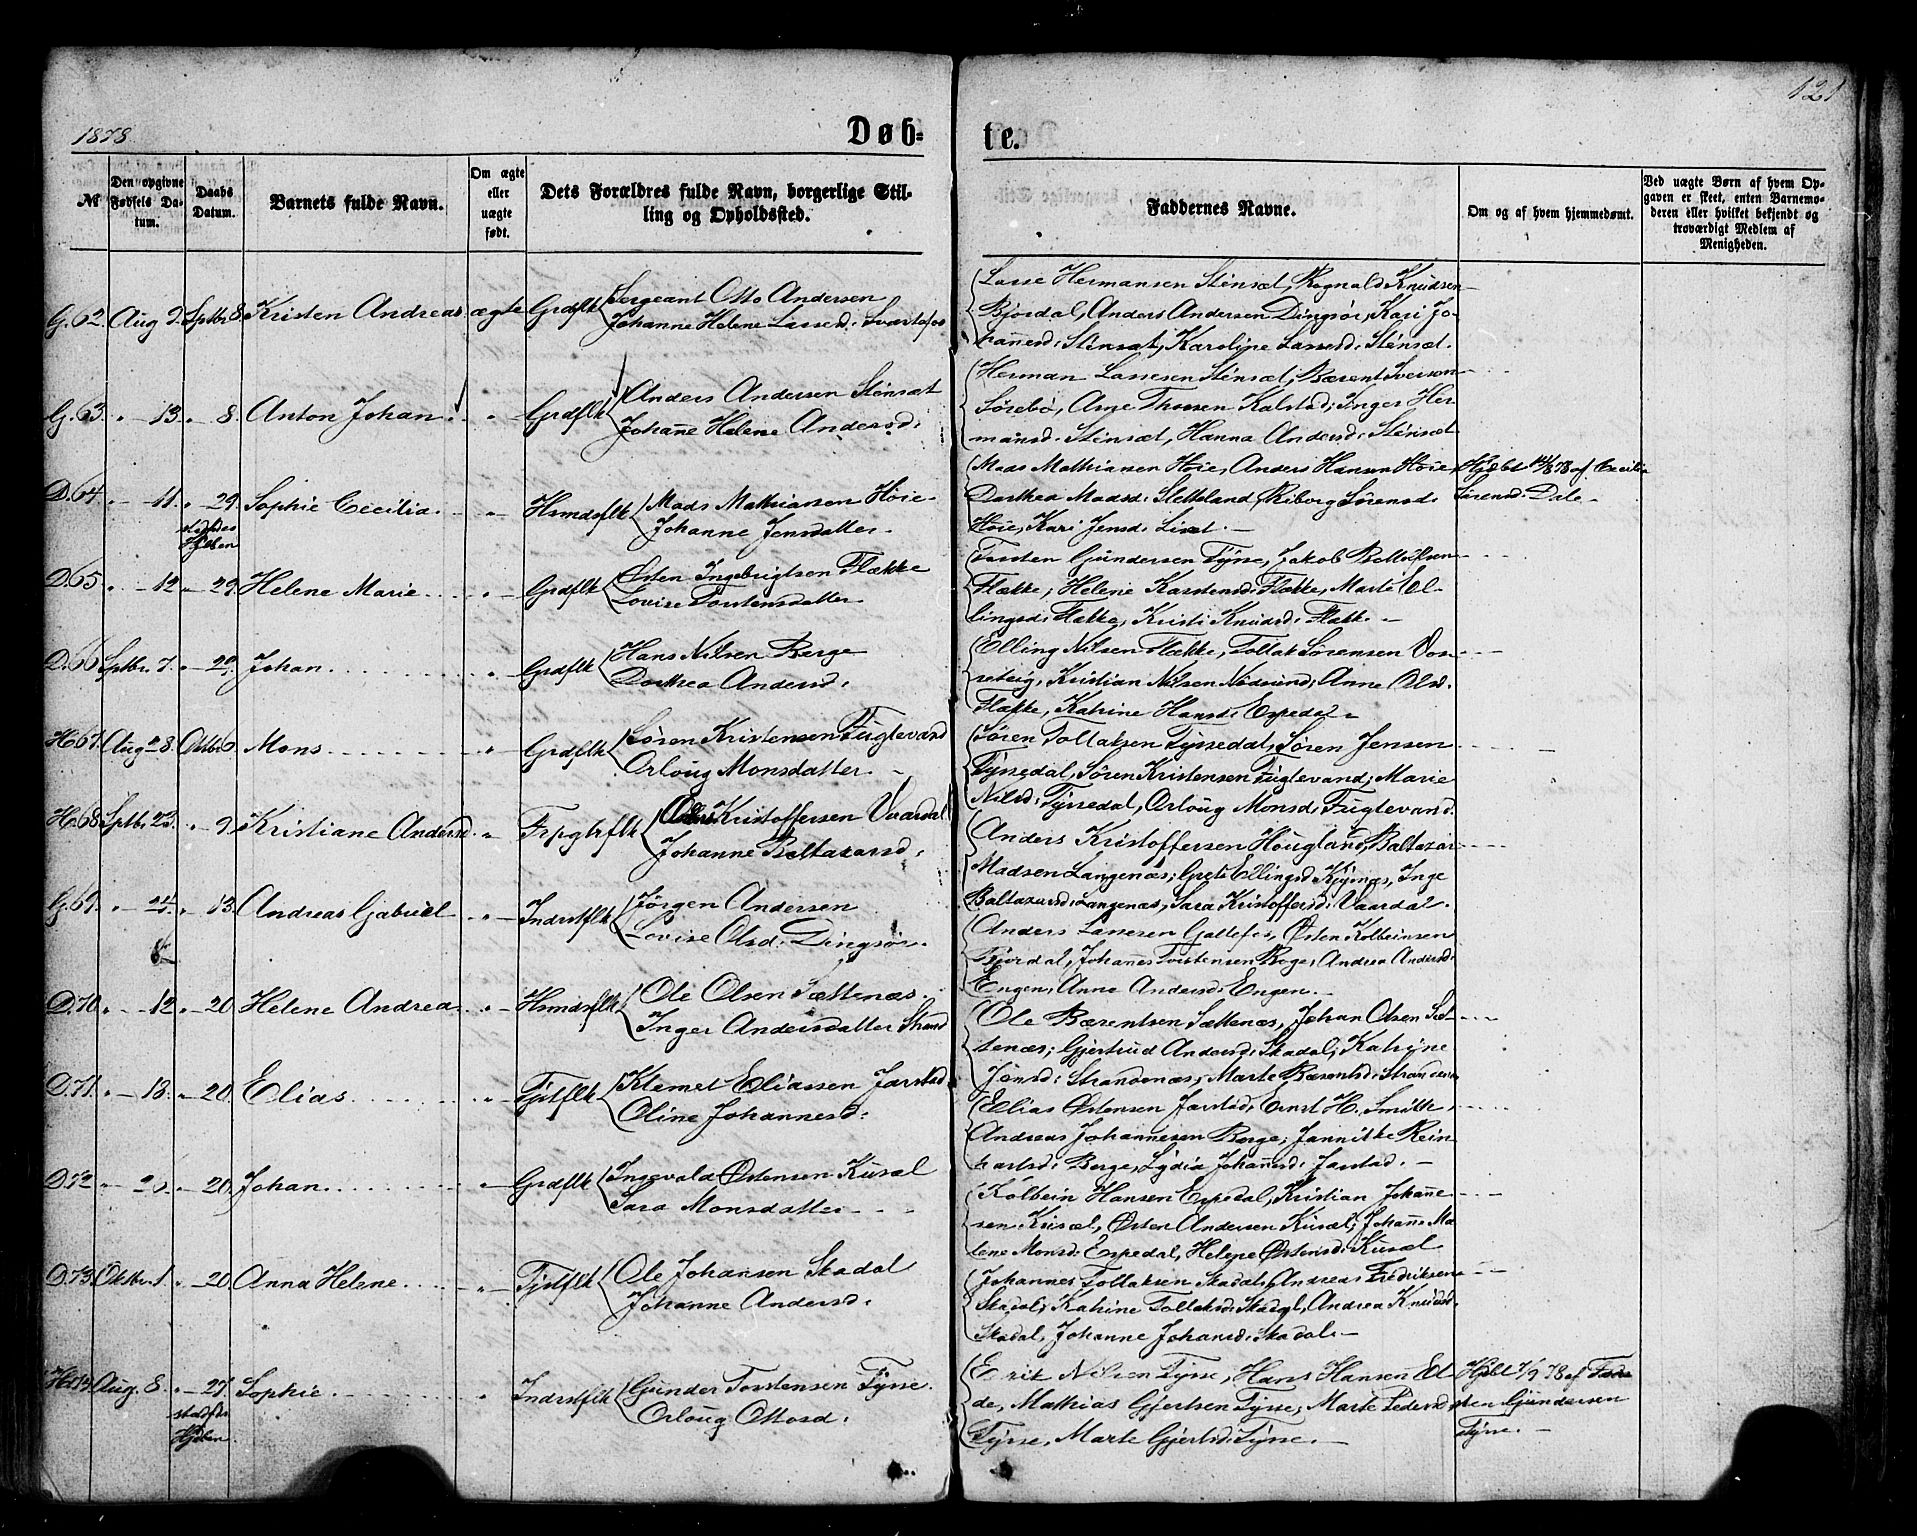 121
1878
Døb-
te.
№
Den opgivne Fødsels Datum.
Daabs Datum.
Barnets fulde Navn.
Om ægte eller uægte født.
Dets Forældres fulde Navn, borgerlige Stilling og Opholdssted.
Faddernes Navne.
Om og af hvem hjemmedømt.
Ved uægte Børn af hvem Opgaven er skeet, enten Barnemoderen eller hvilket bekjendt og troværdigt Medlem af Menigheden.
G. 62. Aug 9. Sptbr 8. Kristen Andreas ægte Grdflk Sergeant Otto Andersen
Johanne Helene Lassesd. Svartefos
Lasse Hermansen Stensæt, Rognald Knudsen
Bjordal, Anders Andersen Dingsør, Kari Jo-
hannesd. Stensæt, Karoline Lassesd. Stensæt.
G. 63. " 13. " 8. Anton Johan " Grdflk Anders Andersen Stensæt
Johanne Helene Andersd.
Herman Lassesen Stensæt, Bærent Iversen
Sørebø, Arne Thoesen Kalstad, Inger Her-
mansd. Stensæt, Hanna Andersd. Stensæt
D. 64. " 11. " 29. Sophie Cecilia " Hsmdsflk Mads Mathiassen Høie
Johanne Jensdatter
stadfæs
Hjdben
Mads Mathiasen Høie, Anders Hansen Høie,
Dorthea Madsd. Sletteland, Riborg Sørensd.
Høie, Kari Jensd. Liset.
Hjdbt 14/8 78 af Cecilia
Sørensd. Dale
D. 65. " 12 " 29. Helene Marie " Grdflk Østen Ingebrigtsen Flække
Lovise Torstensdatter
Torsten Gundersen Tysse, Jakob
Flække, Helene Karstensd. Flække, Marte El-
lingsd. Flække, Kristi Knudsd. Flække
D. 66. Sptbr. 7. " 29. Johan " Grdflk Hans Nilsen Berge
Dorthea Andersd.
Elling Nilsen Flække, Tollak Sørensen Vos-
reteig, Kristian Nilsen Nødsund, Anne Olsd.
Flække, Katrine Hansd. Espedal
H. 67. Aug 28. Oktbr 6. Mons " Grdflk Søren Kristensen Fuglevand
Orloug Monsdatter
Søren Tollaksen Tyssedal, Søren Jensen
Tyssedal, Søren Kristensen Fuglevand, Marie
Nilsd. Tyssedal, Orloug Monsd. Fuglevand.
H. 68. Sptbr. 23. " 9. Kristiane Andersd " Frpgtrflk Kristoffersen Vaardal
Johanne Baltazarsd.
Anders Kristoffersen Hougland, Baltazar
Madsen Langenæs, Grete Ellingsd. , Inge
Baltazarsd. Langenæs, Sara Kristoffersd. Vaardal.
G. 69. " 24. " 13. Andreas Gabriel " Indrstflk Jørgen Andersen
Lovise Olsd. Dingsør.
Anders Lassesen Gallefos, Østen Kolbeinsen
Fjordal, Johannes Torstensen Boge, Andrea Andersd.
Engen, Anne Andersd. Engen.
D. 70. " 12. " 20. Helene Andrea " Hsmdsflk Ole Olsen Sættenæs.
Inger Andersdatter Strand
Ole Bærentsen Sættenæs, Johan Olsen Sæt-
tenæs, Gjertrud Andersd. Skadal, Katrine
Jensd. Strandenæs, Marte Bærentsd. Strandenæs
D. 71. " 13. " 20. Elias " Tjstflk Klemet Eliassen Jarstad
Oline Johannesd.
Elias Østensen Jarstad, Ernst H. Smith,
Andreas Johannesen Berge, Jannikke Rein-
hartsd. Berge, Lydia Johannesd. Jarstad.
D. 72 " 20. " 20. Johan " Grdflk Ingevald Østensen Kusæl
Sara Monsdatter
Kolbein Hansen Espedal, Kristian Johanne-
sen Kusæl, Østen Andersen Kusæl, Johanne Ma-
lene Monsd. Espedal, Helene Østensd. Kusæl
D. 73. Oktbr. 1. " 20. Anna Helene " Tjstflk Ole Johansen Skadal
Johanne Andersd.
Johannes Tollaksen Skadal, Andreas Fredriksen
Skadal, Katrine Tollaksd. Skadal, Andrea Knudsd.
Skadal, Johanne Johansd. Skadal.
Aug. 8. " 27. Sophie " Indrstflk Gunder Torstensen Tysse.
Orloug Ottosd.
stadfæs
Hjdben
Erik Nilsen Tysse, Hans Hansen El-
de, Mathias Gjertsen Tysse, Marte Pedersd.
Tysse, Marte Gjertsd. Tysse.
Hjdbt 7/9 78 af Tors-
ten Gundersen
Tysse.